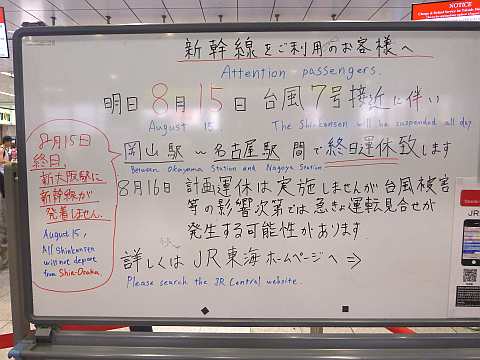 新幹線をご利用のお客様へ
Attention passengers.
明日8月15日 台風7号接近に伴い
August 15 The Shinkansen will be suspended all day
岡山駅〜名古屋駅 間で終日運休致します
Between Okayama Station and Nagoya Station
8月16日 計画運休は実施しませんが台風被害
等の影響次第では急きょ運転見合せが
発生する可能性があります
詳しくは JR東海ホームページへ⇒
Please search the JR Central website.
8月15日
終日、
新大阪駅に
新幹線が
発着しません。
August 15,
All Shinkansen
will not depart
from Shin-Osaka.
NOTICE
JR